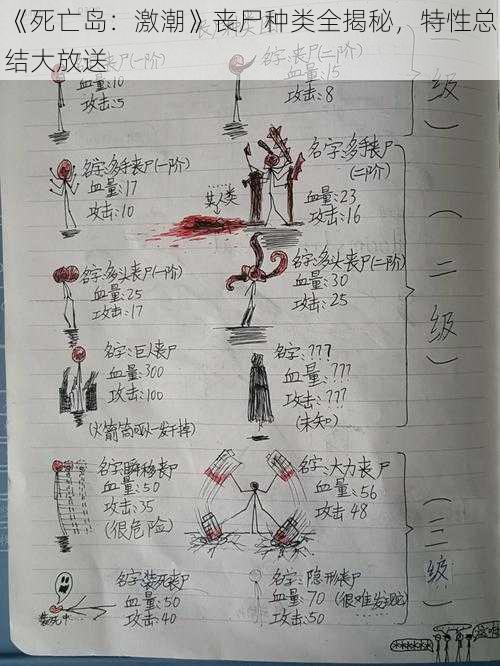 《死亡岛：激潮》丧尸种类全揭秘，特性总
结大放送
血量:10
攻击:5
丧尸(二阶)
血量:15
攻击:8
(一级)
名字:多手丧尸(一阶)
血量:17
攻击:10
名字:多手丧尸
(二阶)
血量:23
攻击:16
某人类
名字:多头丧尸(一阶)
血量:25
攻击:17
名字:多头丧尸(二阶)
血量:30
攻击:25
(二级)
名字:巨人丧尸
血量:300
攻击:100
(火箭筒哑火一发干掉)
名字:???
血量:???
攻击:???
(未知)
名字:瞬移丧尸
血量:50
攻击:35
(很危险)
名字:大力丧尸
血量:56
攻击48
(三级)
名字:装死丧尸
血量:50
攻击:40
装死中…
名字:隐形丧尸
血量:70(很难发现)
攻击:50